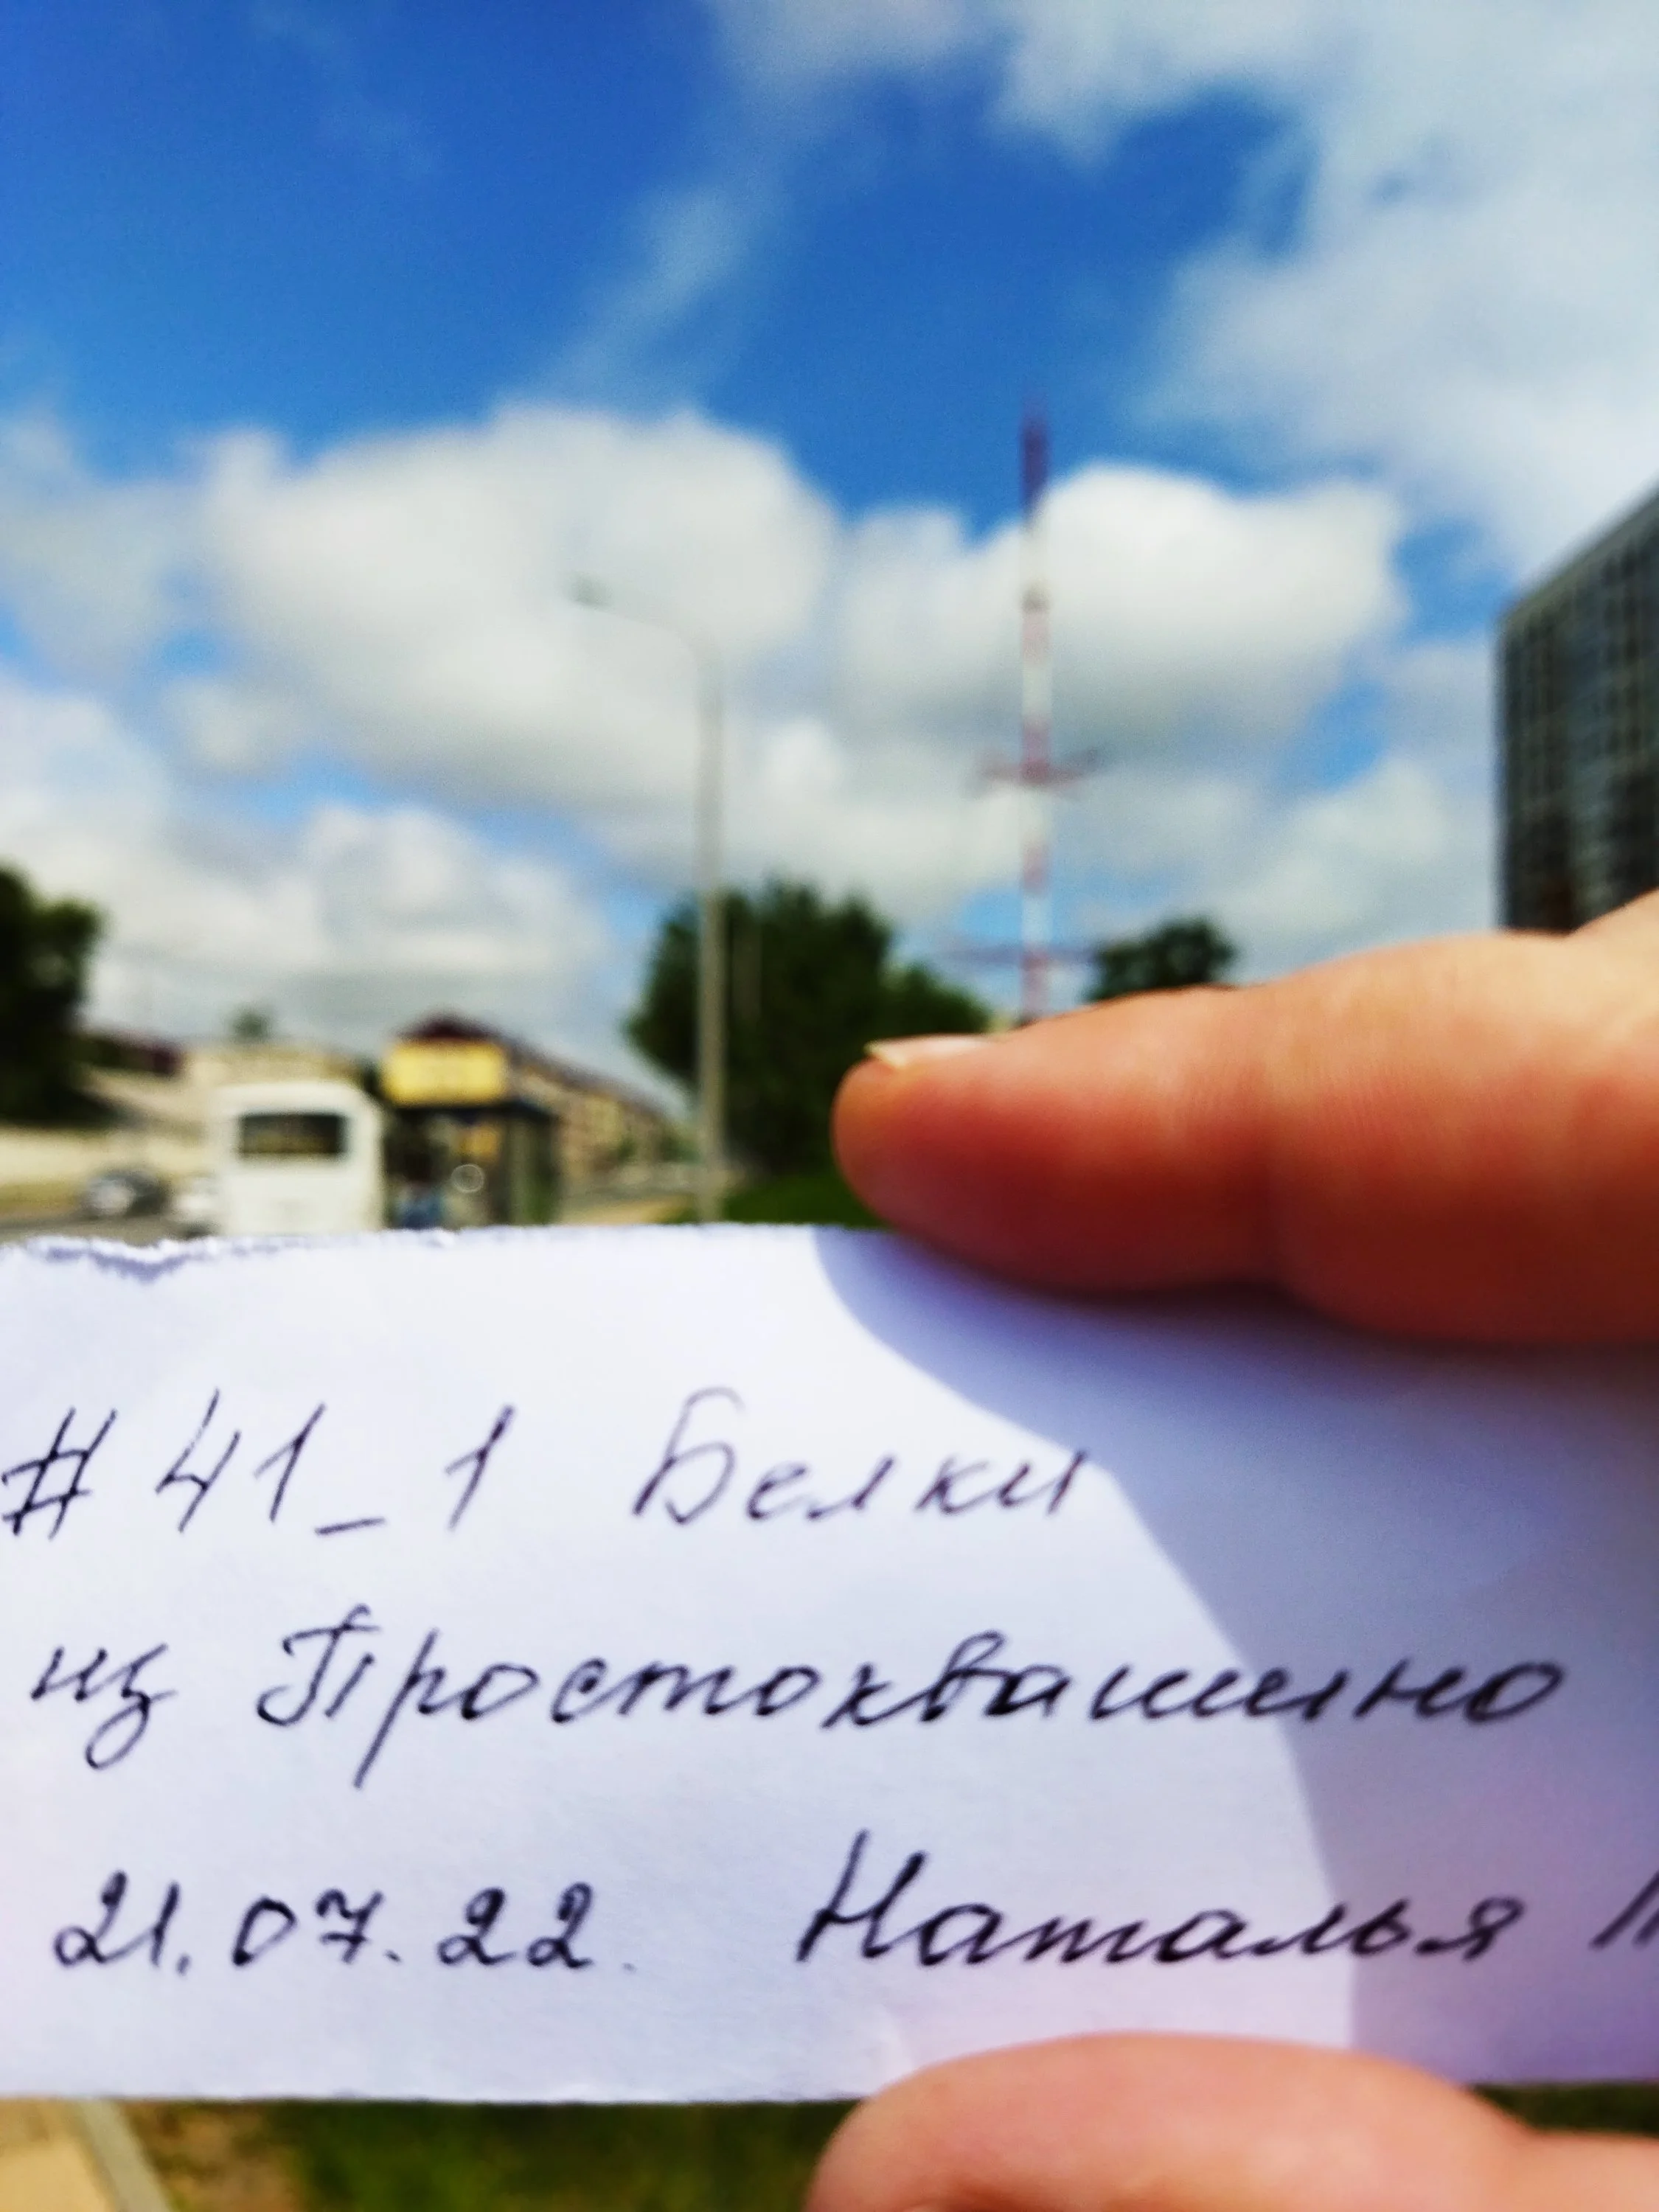 #41_1 Белки
из Простоквашино
21.07.22. Наталья